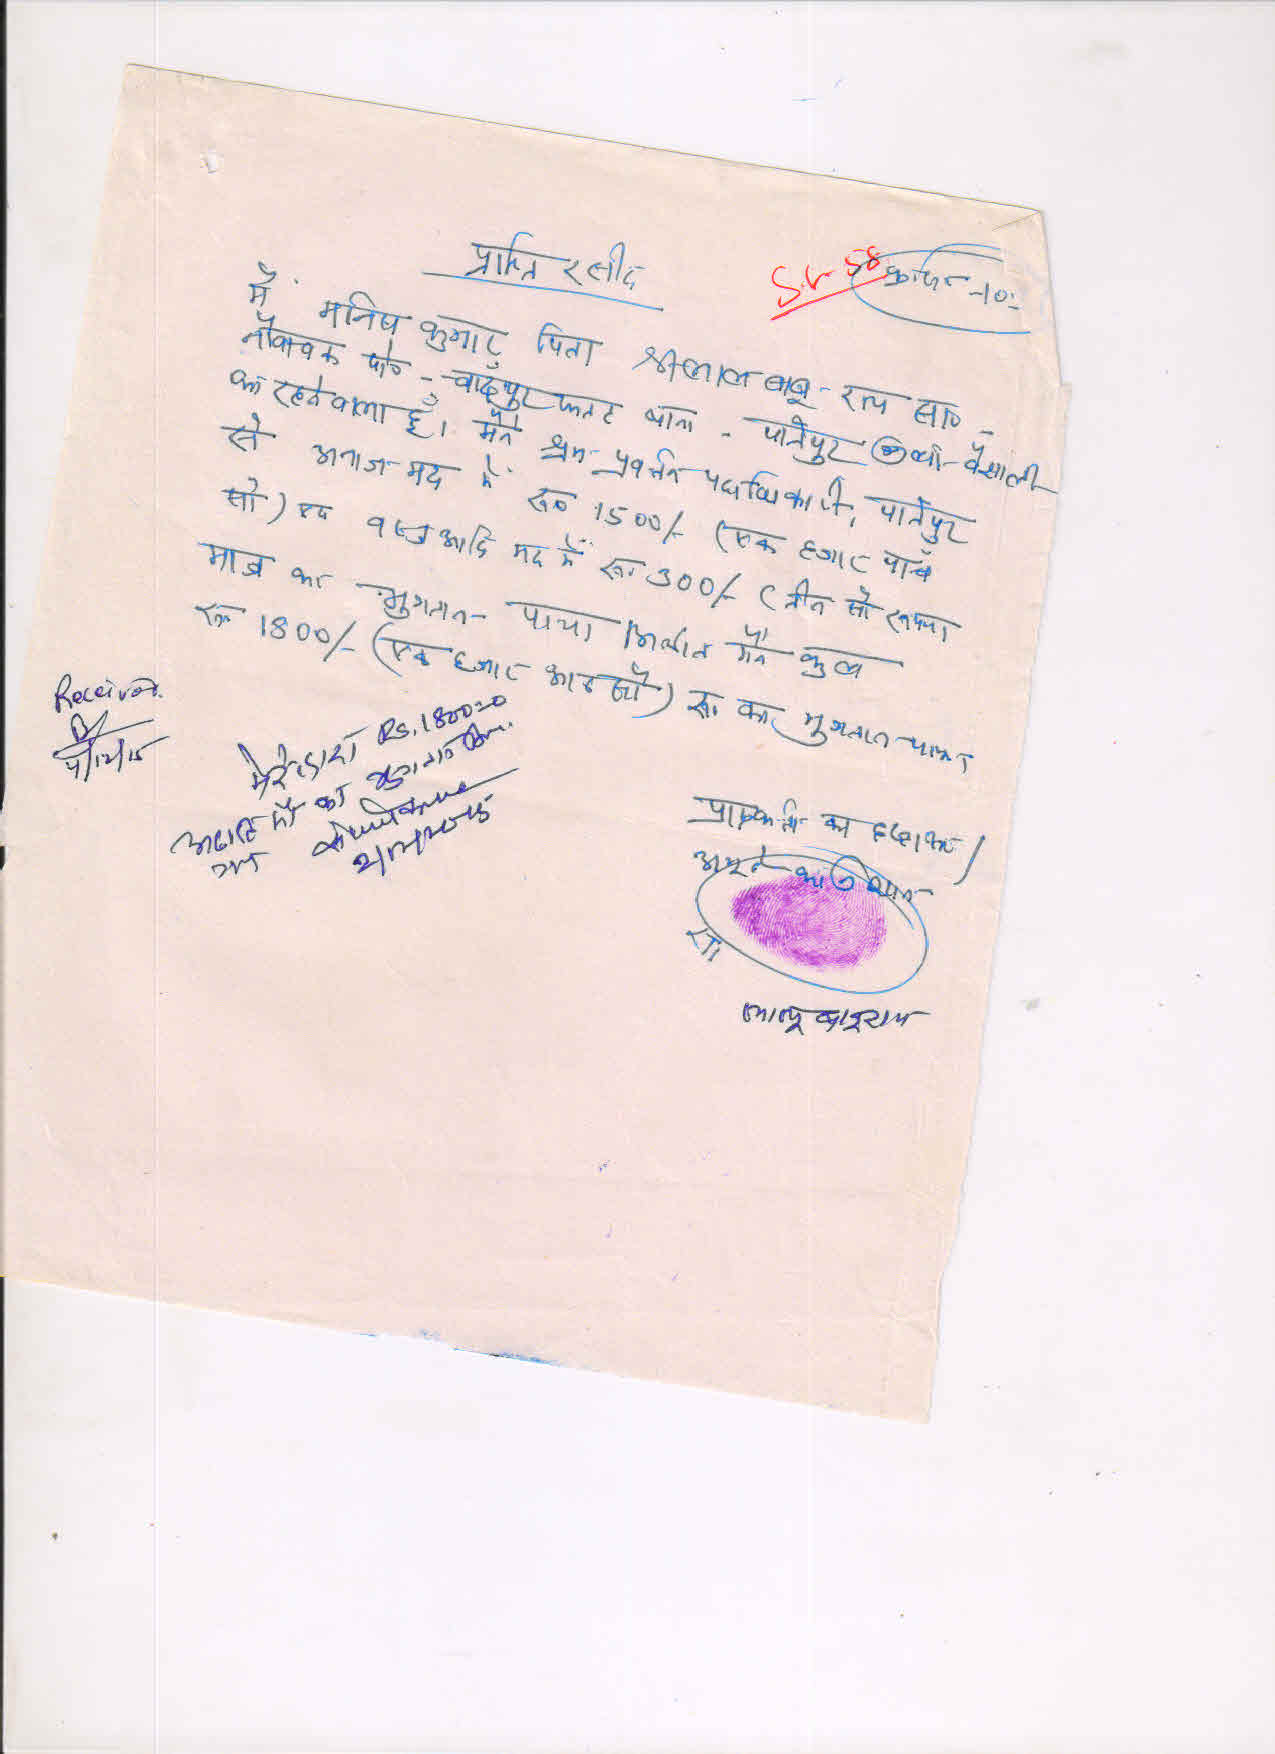 प्राप्ति रसीद
S.V-58
फार्म-10
मैं मनिष कुमार पिता श्री लाल बाबू राय सा०-
पो०- चाँदपुर फतह थाना- पातेपुर वैशाली
का रहनेवाला हूँ। मैंने श्रम प्रवर्त्तन पदाधिकारी, पातेपुर
से अनाज मद में रू० 1500/- (एक हजार पाँच
सौ) एवं वस्त्र आदि मद में रू० 300/- (तीन सौ रूपया)
मात्र का भुगतान पाया अर्थात मैंने कुल
रू० 1800/- (एक हजार आठ सौ) रू. का भुगतान पाया
Received
4/12/15
मेरे द्वारा Rs. 1800=00
अठारह सौ का भुगतान किया
गया
प्राप्तकर्त्ता का हस्ताक्षर/
अंगूठे का निशान
लालू बाबू राय